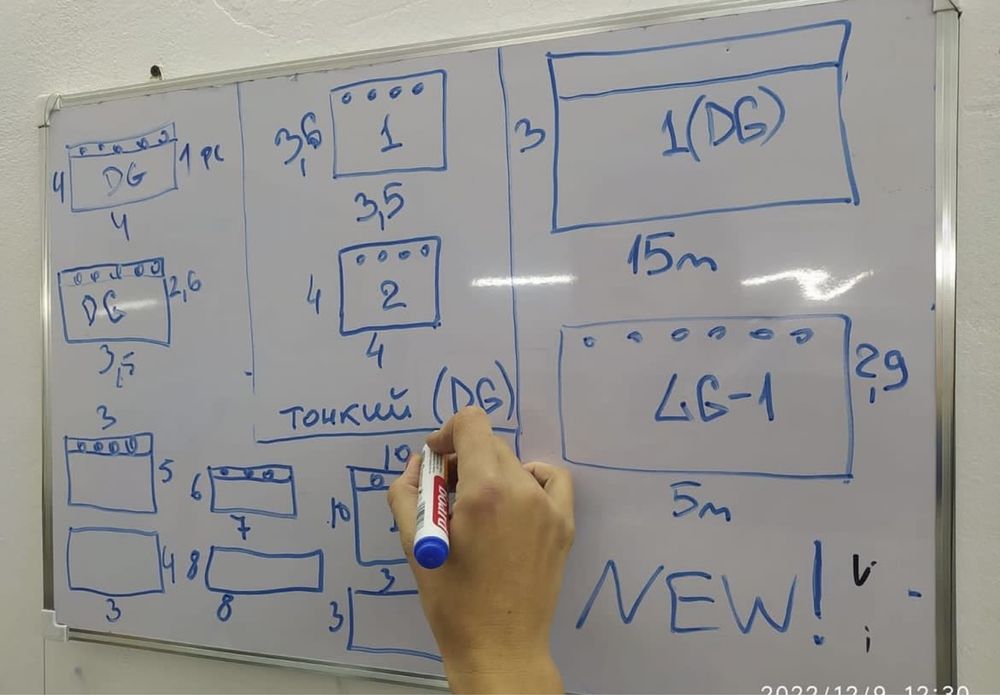 DG
4
1 pc
4
DG
2,6
3,5
3
5
4
3
6
7
8
8
1
3,6
3,5
2
4
4
тонкий (DG)
10
10
3
3
3
1(DG)
15m
LG-1
2,9
5m
NEW!
Board
2022/12/9 12:30